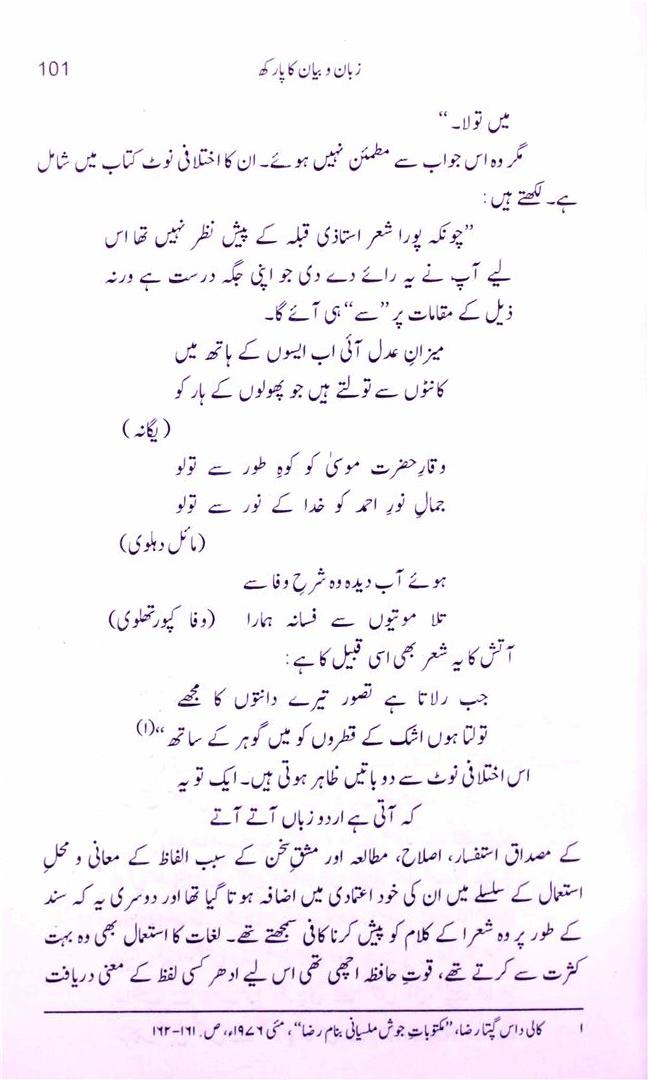 زبان و بیان کا پارکھ 101
میں تولا۔ “
مگر وہ اس جواب سے مطمئن نہیں ہوئے۔ ان کا اختلافی نوٹ کتاب میں شامل
ہے۔ لکھتے ہیں:
”چونکہ پورا شعر استاذی قبلہ کے پیش نظر نہیں تھا اس
لیے آپ نے یہ رائے دے دی جو اپنی جگہ درست ہے ورنہ
ذیل کے مقامات پر ”سے“ ہی آئے گا۔
میزانِ عدل آئی اب ایسوں کے ہاتھ میں
کانٹوں سے تولتے ہیں جو پھولوں کے ہار کو
(یگانہ)
وقارِ حضرت موسیٰ کو کوہِ طور سے تولو
جمالِ نورِ احمد کو خدا کے نور سے تولو
(مائل دہلوی)
ہوئے آب دیدہ وہ شرحِ وفا سے
تلا موتیوں سے فسانہ ہمارا (وفا کپورتھلوی)
آتش کا یہ شعر بھی اسی قبیل کا ہے:
جب رلاتا ہے تصور تیرے دانتوں کا مجھے
تولتا ہوں اشک کے قطروں کو میں گوہر کے ساتھ“(۱)
اس اختلافی نوٹ سے دو باتیں ظاہر ہوتی ہیں۔ ایک تو یہ
کہ آتی ہے اردو زباں آتے آتے
کے مصداق استفسار، اصلاح، مطالعہ اور مشقِ سخن کے سبب الفاظ کے معانی و محلِ
استعمال کے سلسلے میں ان کی خود اعتمادی میں اضافہ ہوتا گیا تھا اور دوسری یہ کہ سند
کے طور پر وہ شعرا کے کلام کو پیش کرنا کافی سمجھتے تھے۔ لغات کا استعمال بھی وہ بہت
کثرت سے کرتے تھے، قوتِ حافظہ اچھی تھی اس لیے ادھر کسی لفظ کے معنی دریافت
۱ کالی داس گپتا رضا، ”مکتوباتِ جوش ملسیانی بنام رضا“، مئی ۱۹۷۶ء، ص. ۱۶۱-۱۶۲